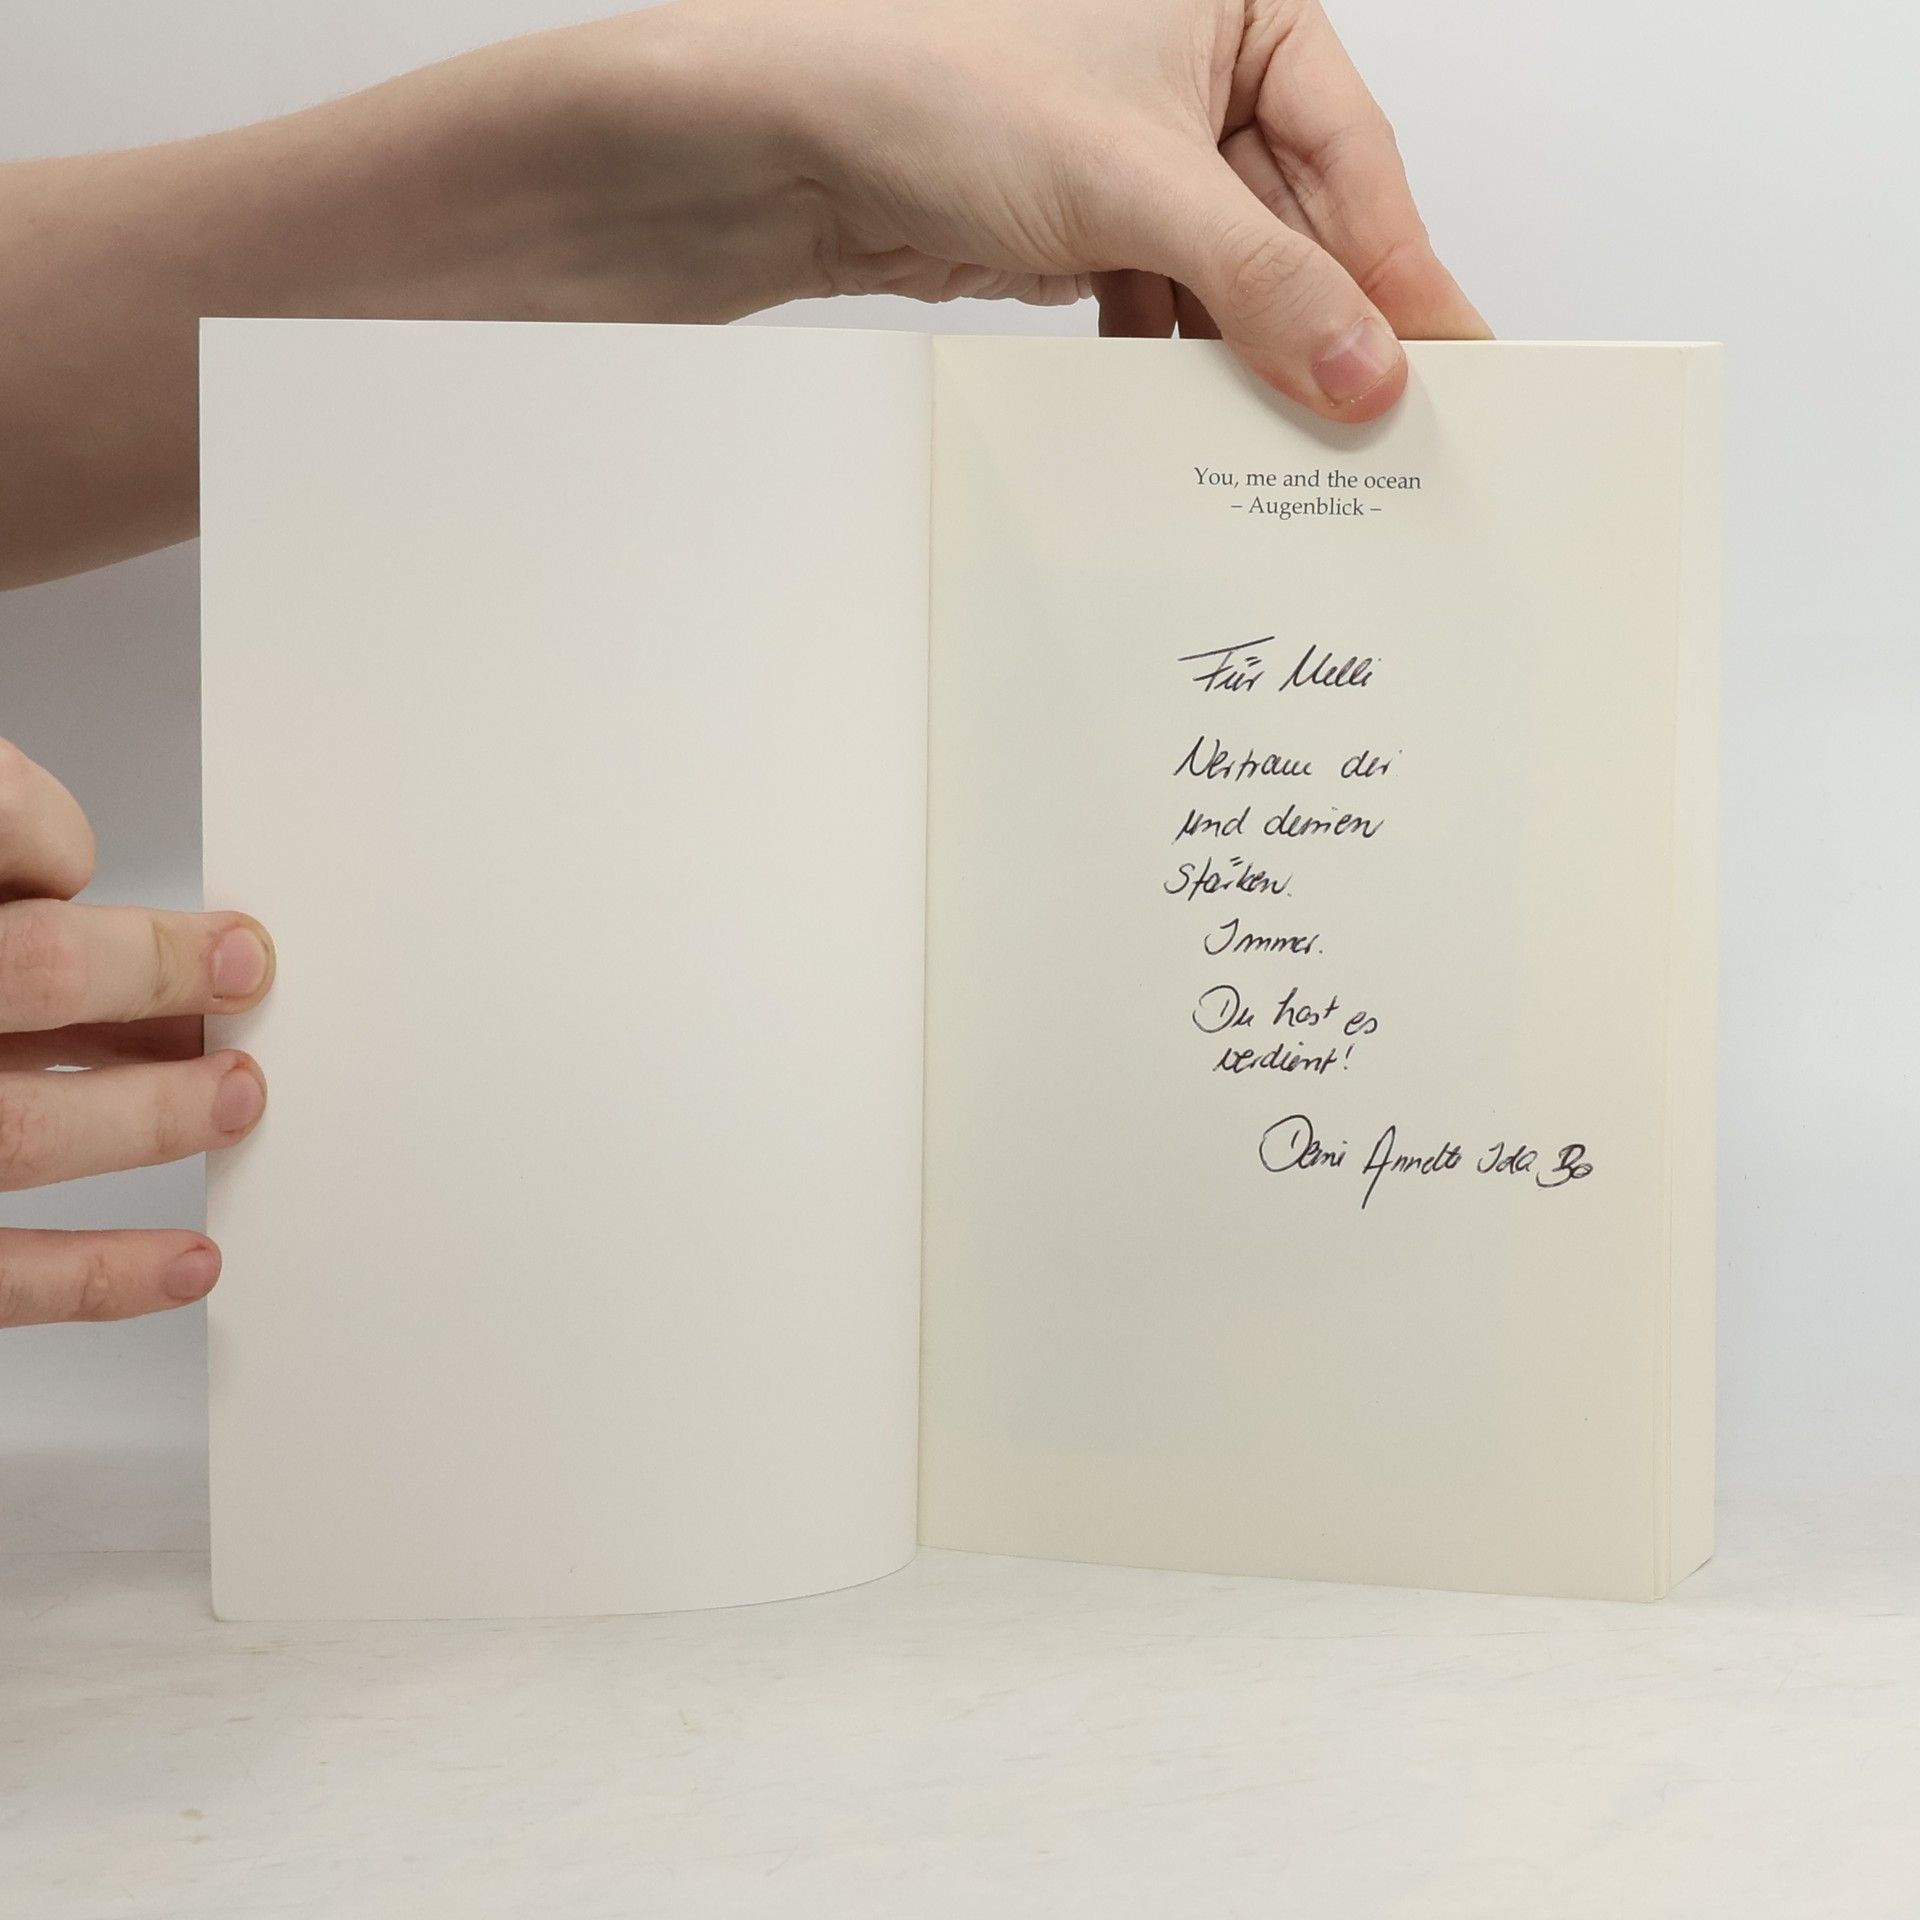 You, me and the ocean
– Augenblick –
Für Melli
Vertraue dir
und deinen
Stärken.
Immer.
Du hast es
verdient!
Deine Annette Ida Bo